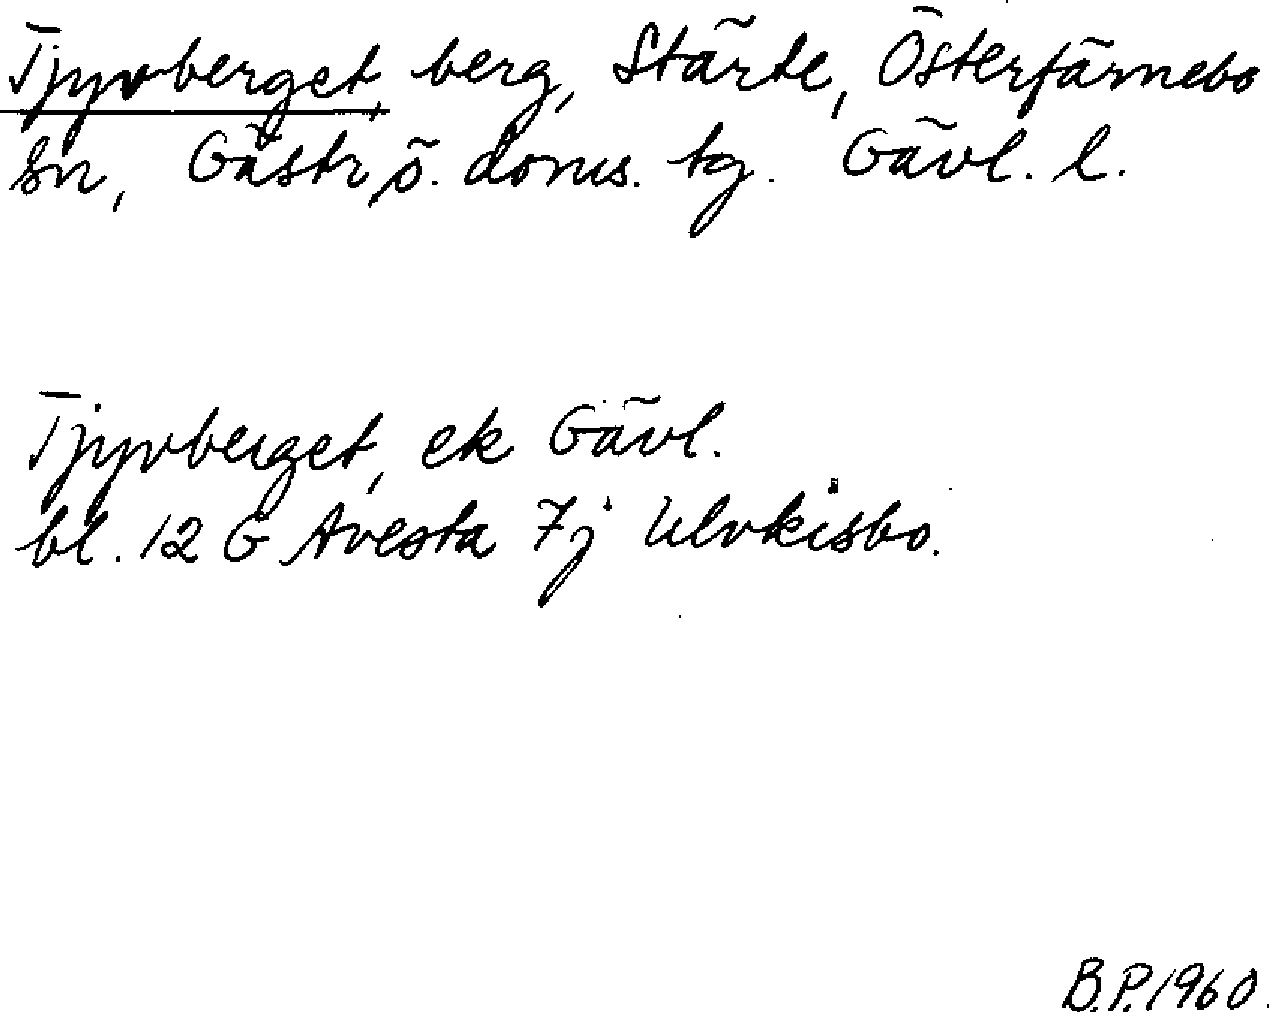 Tjyvberget, berg, Stärte, Österfärnebo
sn, Gästr. ö. doms. tg. Gävl. l.
Tjyvberget, ek Gävl.
bl. 12 G Avesta 7j Ulvkisbo.
B.P. 1960.